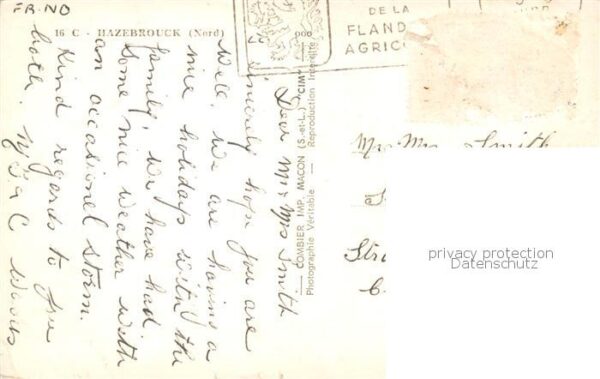 FR.NO
16 C - HAZEBROUCK (Nord)
DE LA
FLAND
AGRIC
Dear Mr & Mrs Smith
sincerely hope you are
Well, We are having a
nice holidays with the
family, We have had
some nice weather with
an occasional storm.
Kind regards to you
both.
COMBIER IMP. MACON (S.-et-L.) "CIM"
Photographie Véritable - Reproduction Interdite
Mr Mrs Smith
Stra
privacy protection
Datenschutz